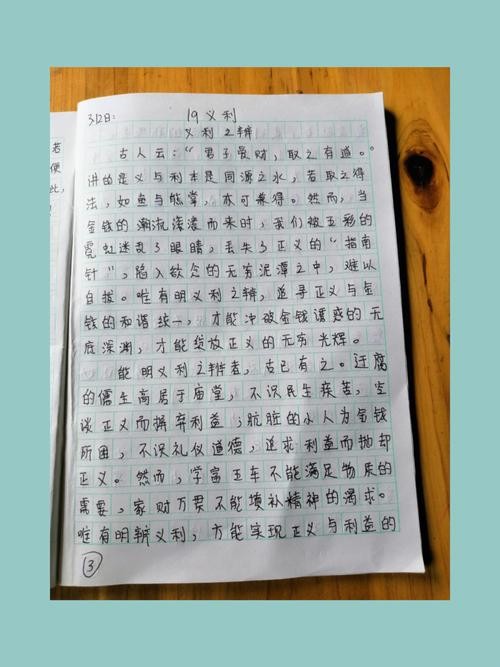 若
便
此,
3.12日:
19 义利
义利之辨
古人云:“君子爱财,取之有道。”
讲的是义与利本是同源之水,若取之得
法,如鱼与熊掌,亦可兼得。然而,当
金钱的潮流滚滚而来时,我们被五彩的
霓虹迷乱了眼睛,丢失了正义的“指南
针”,陷入欲念的无穷泥潭之中,难以
自拔。唯有明义利之辨,追寻正义与金
钱的和谐统一,才能冲破金钱诱惑的无
底深渊,才能绽放正义的无穷光辉。
能明义利之辨者,古已有之。迂腐
的儒生高居于庙堂,不识民生疾苦,空
谈正义而摒弃利益;肮脏的小人为金钱
所困,不识礼仪道德,追求利益而抛却
正义。然而,学富五车不能满足物质的
需要,家财万贯不能填补精神的渴求。
唯有明辨义利,方能实现正义与利益的
3